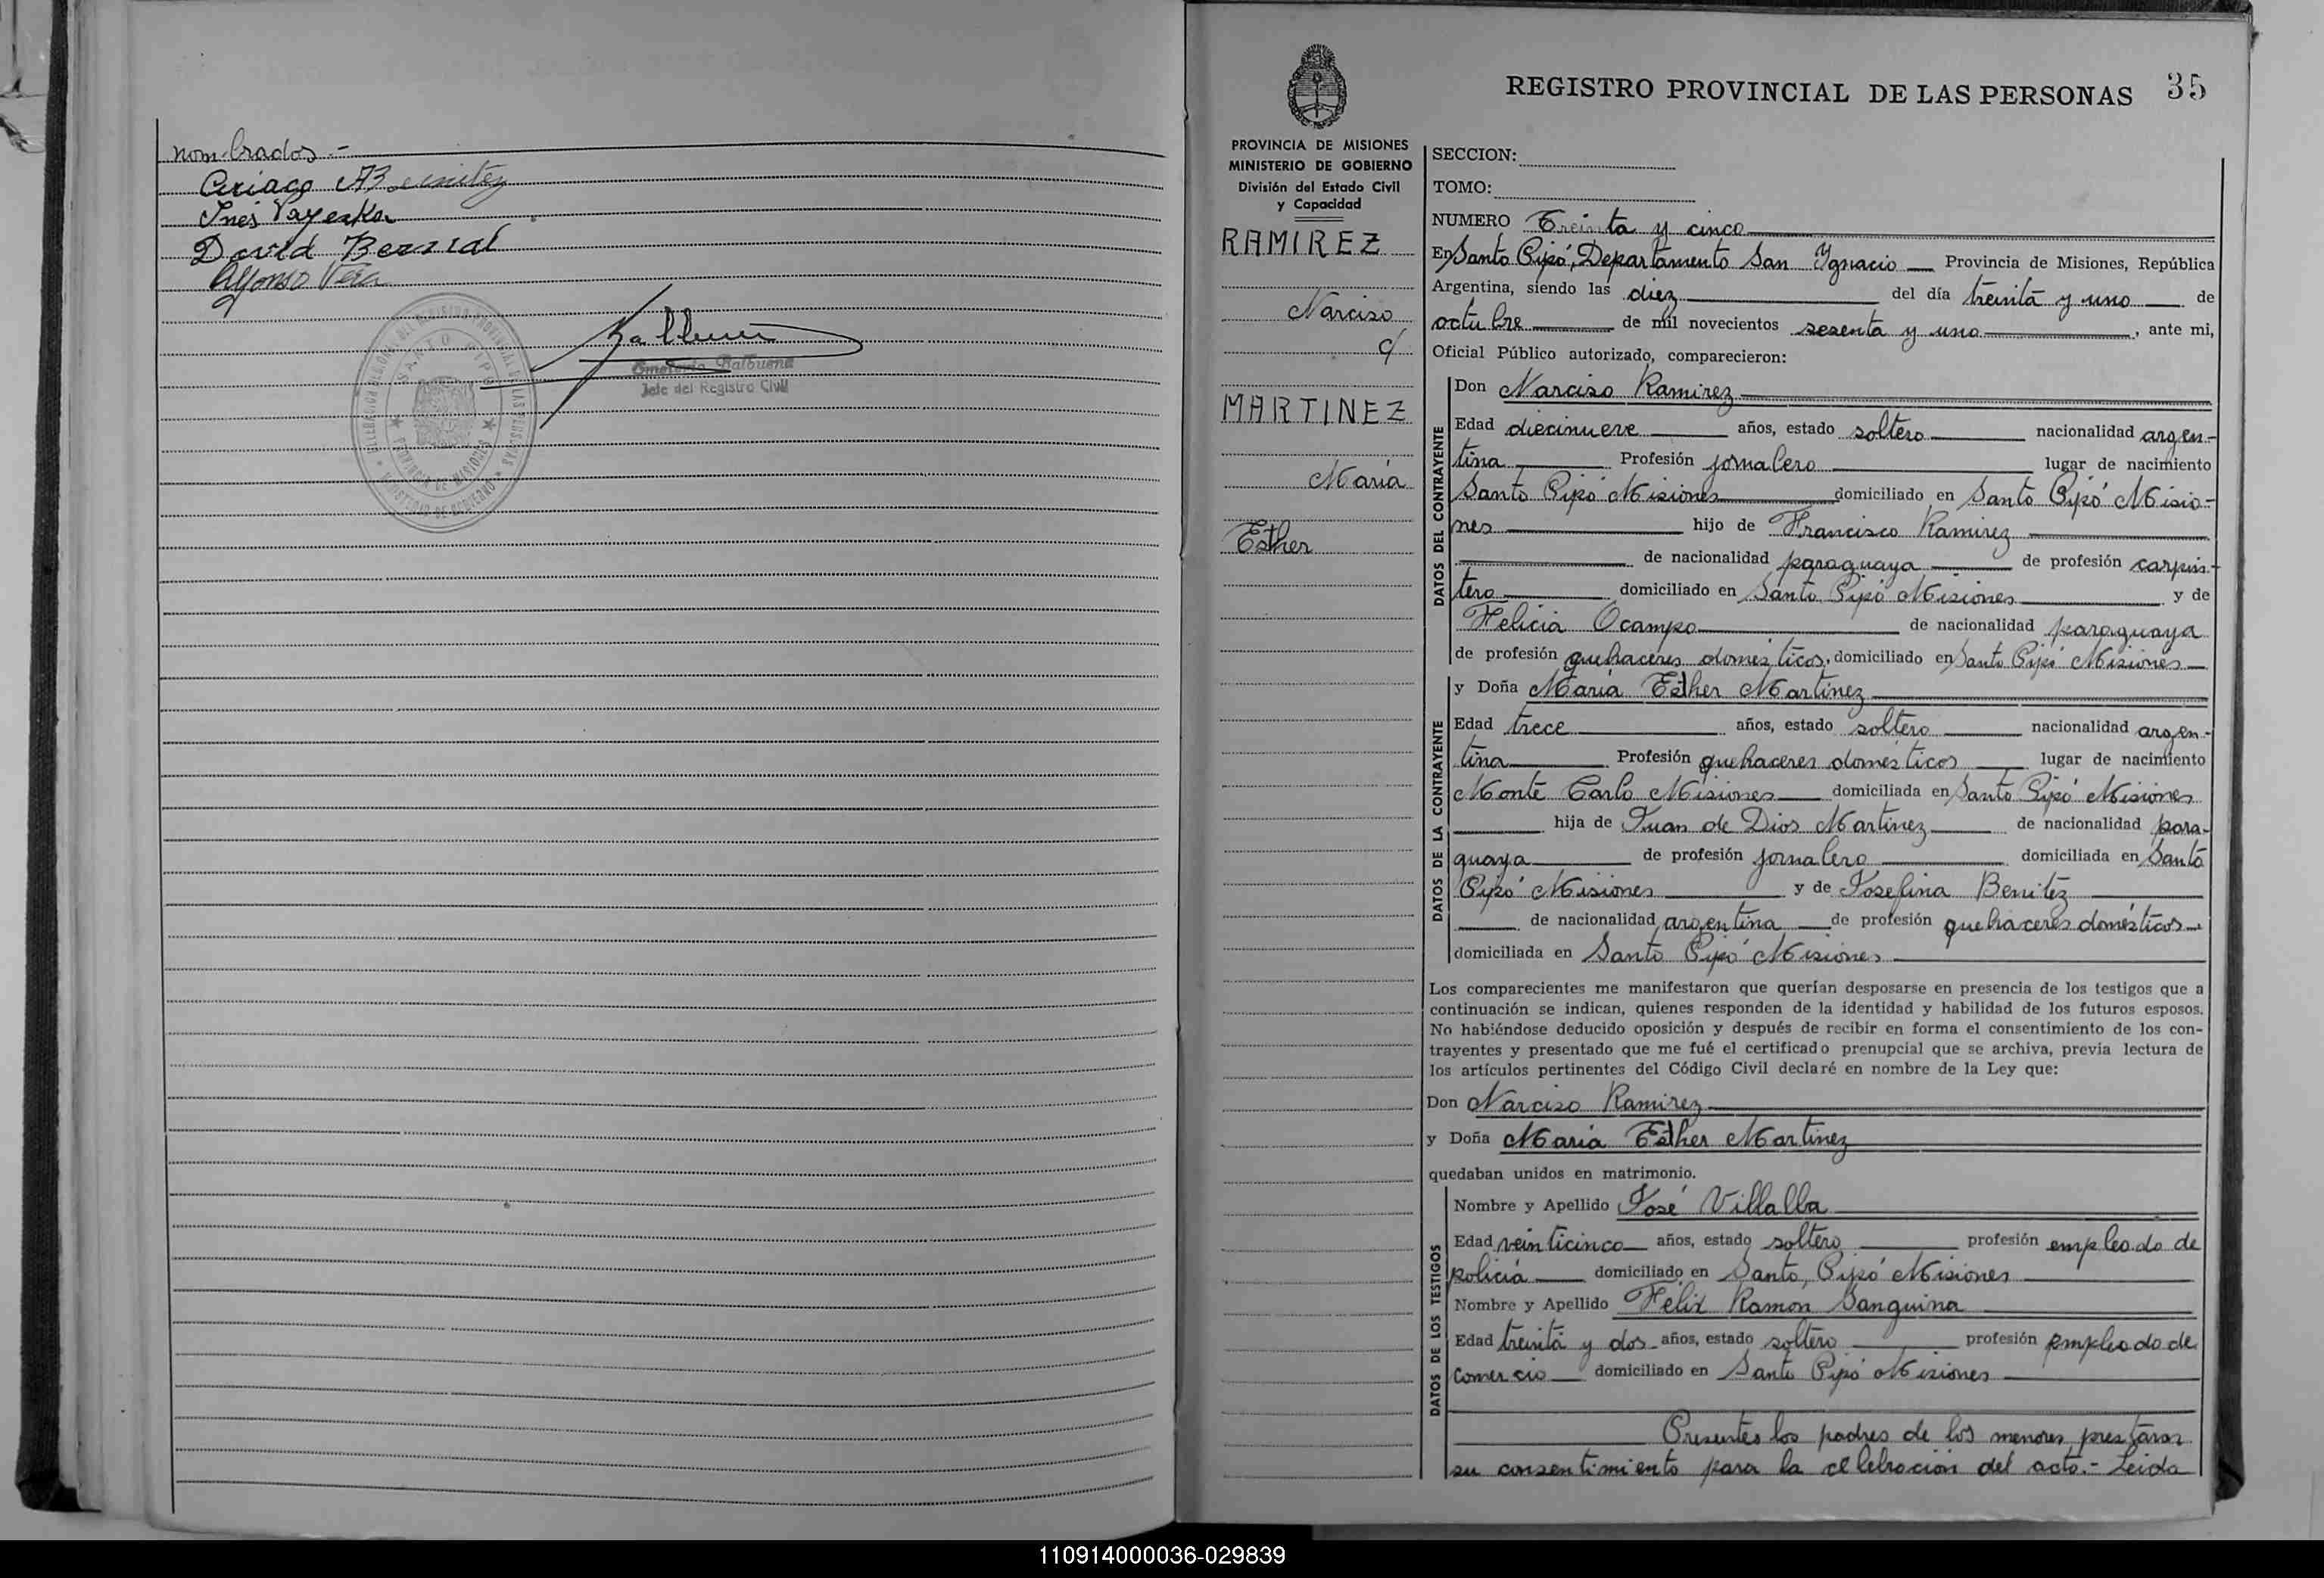 nombrados.-
Ciriaco A Benitez
Inés Payeska
David Bernal
Alfonso Vera
SANTO PIPO
PROVINCIA DE MISIONES
MINISTERIO DE GOBIERNO
Balbuena
Jefe del Registro Civil
REGISTRO PROVINCIAL DE LAS PERSONAS 35
PROVINCIA DE MISIONES
MINISTERIO DE GOBIERNO
División del Estado Civil
y Capacidad
RAMIREZ
Narciso
c/
MARTINEZ
María
Esther
SECCION:
TOMO:
NUMERO Treinta y cinco
En Santo Pipó, Departamento San Ygnacio Provincia de Misiones, República
Argentina, siendo las diez del día treinta y uno de
octubre de mil novecientos sesenta y uno, ante mi,
Oficial Público autorizado, comparecieron:
DATOS DEL CONTRAYENTE
Don Narciso Ramirez
Edad diecinueve años, estado soltero nacionalidad argen-
tina Profesión jornalero lugar de nacimiento
Santo Pipó Misiones domiciliado en Santo Pipó Misio-
nes hijo de Francisco Ramirez
de nacionalidad paraguaya de profesión carpin-
tero domiciliado en Santo Pipó Misiones y de
Felicia Ocampo de nacionalidad paraguaya
de profesión quehaceres domésticos, domiciliado en Santo Pipó Misiones
DATOS DE LA CONTRAYENTE
y Doña María Esther Martinez
Edad trece años, estado soltero nacionalidad argen-
tina Profesión quehaceres domésticos lugar de nacimiento
Monte Carlo Misiones domiciliada en Santo Pipó Misiones
hija de Juan de Dios Martinez de nacionalidad para-
guaya de profesión jornalero domiciliada en Santo
Pipó Misiones y de Josefina Benitez
de nacionalidad argentina de profesión quehaceres domésticos
domiciliada en Santo Pipó Misiones
Los comparecientes me manifestaron que querían desposarse en presencia de los testigos que a
continuación se indican, quienes responden de la identidad y habilidad de los futuros esposos.
No habiéndose deducido oposición y después de recibir en forma el consentimiento de los con-
trayentes y presentado que me fué el certificado prenupcial que se archiva, previa lectura de
los artículos pertinentes del Código Civil declaré en nombre de la Ley que:
Don Narciso Ramirez
y Doña María Esther Martinez
quedaban unidos en matrimonio.
DATOS DE LOS TESTIGOS
Nombre y Apellido José Villalba
Edad veinticinco años, estado soltero profesión empleado de
policía domiciliado en Santo Pipó Misiones
Nombre y Apellido Félix Ramón Sanguina
Edad treinta y dos años, estado soltero profesión empleado de
comercio domiciliado en Santo Pipó Misiones
Presentes los padres de los menores prestaron
su consentimiento para la celebración del acto.- Leida
110914000036-029839